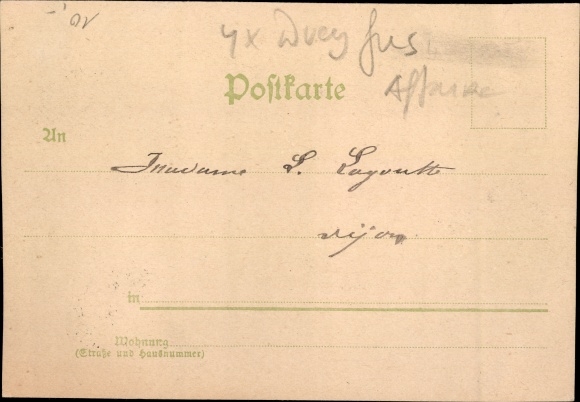 4x Dreyfus
Affaire
Postkarte
An
Madame L. Lagoutte
Dijon
in
Wohnung
(Straße und Hausnummer)